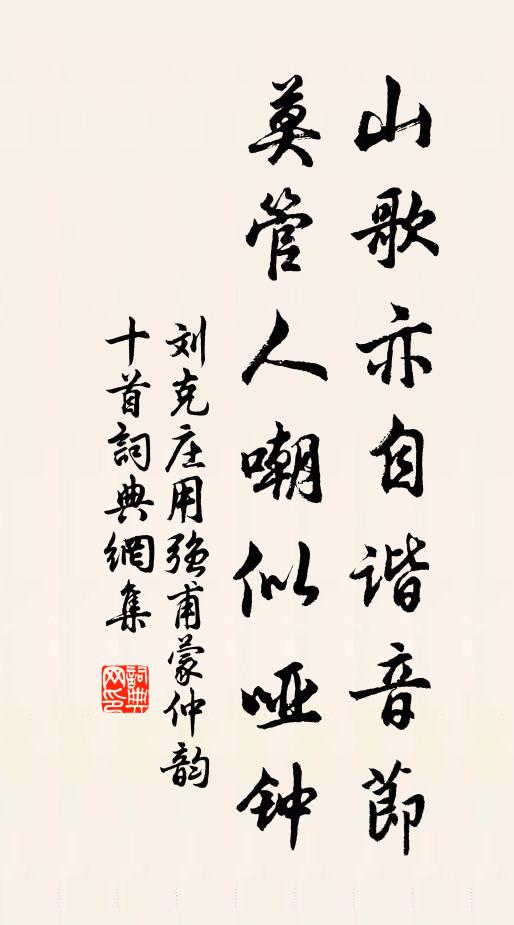 山歌亦自谐音節
莫管人嘲似哑钟
刘克庄用強甫蒙仲韵
十首詞典網集
詞典网印